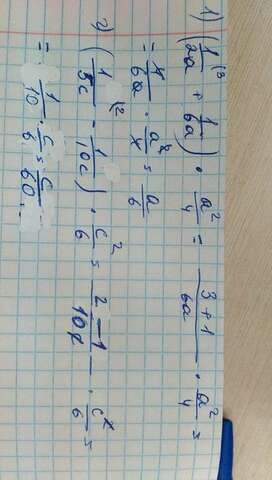 1) (1/2a ⁽³ + 1/6a) · a²/4 = 3+1/6a · a²/4 =
= 4/6a · a²/4 = a/6
2) (1/5c ⁽² - 1/10c) · c²/6 = 2-1/10c · c²/6 =
= 1/10 · c/6 = c/60